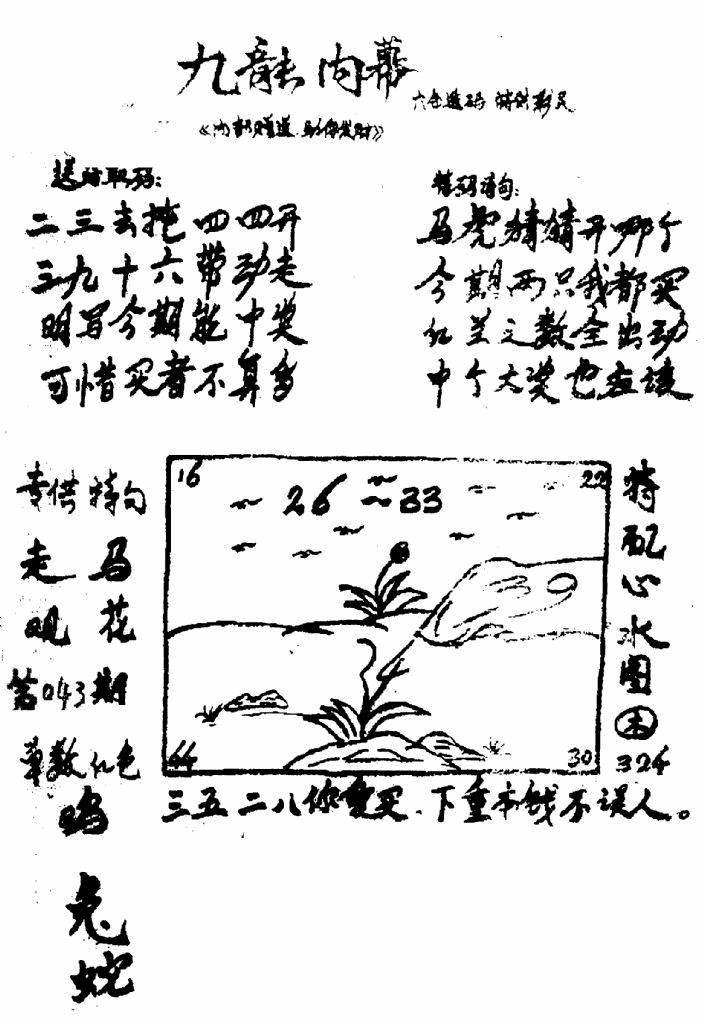 九龍内幕
六合透码 特供彩民
《内部赠送 助你发财》
送特联码:
二三去掩四四开
三九十六带动走
明写今期能中奖
可惜买者不算多
特码诗句:
马虎猜猜开哪个
今期两只我都买
红兰之数全出动
中个大奖也应该
专供特句
走马
观花
第043期
单数红色
鸡
兔
蛇
16
22
26~33
44
30
特配心水图
324
三五二八你要买.下重本钱不误人。